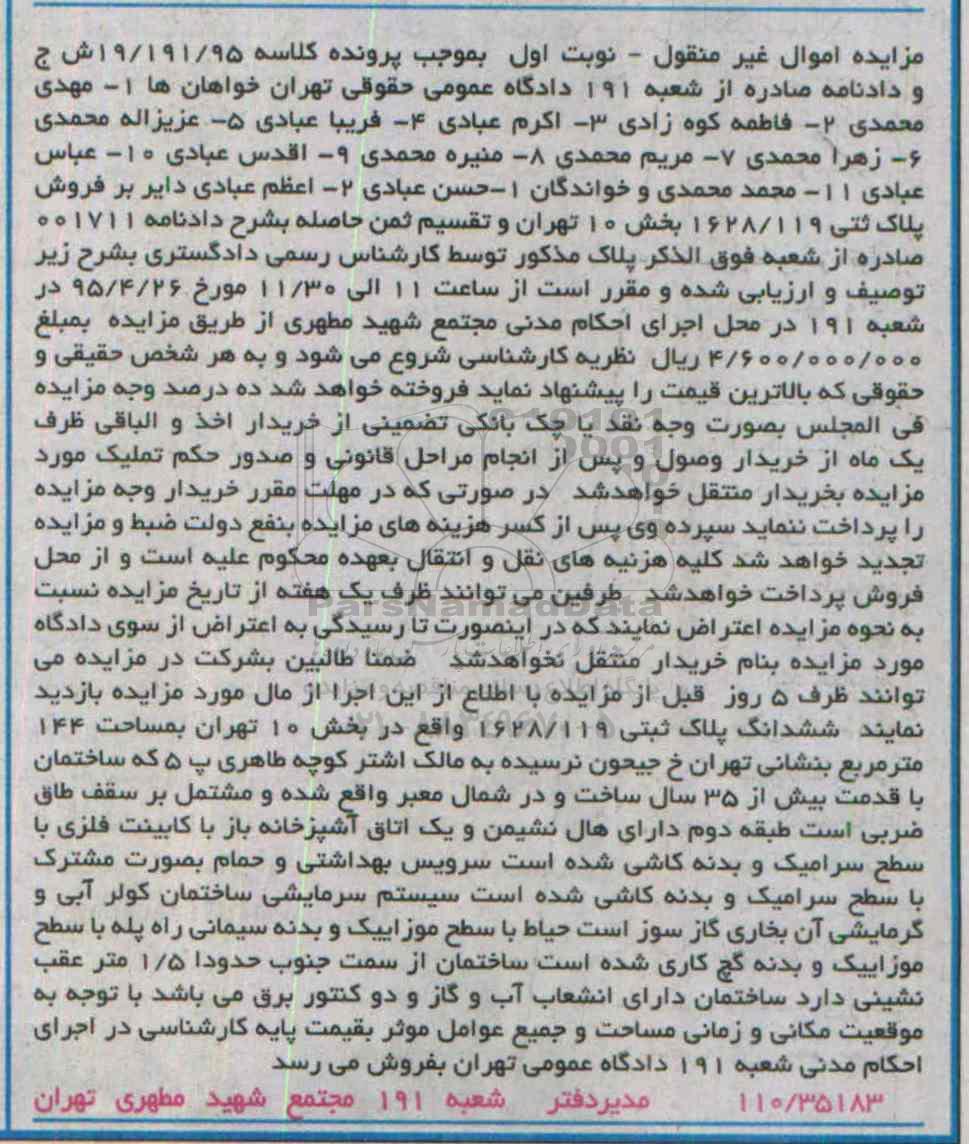 مزایده اموال غیر منقول - نوبت اول بموجب پرونده کلاسه ۱۹/۱۹۱/۹۵ش ج
و دادنامه صادره از شعبه ۱۹۱ دادگاه عمومی حقوقی تهران خواهان ها ۱- مهدی
محمدی ۲- فاطمه کوه زادی ۳- اکرم عبادی ۴- فریبا عبادی ۵- عزیزاله محمدی
۶- زهرا محمدی ۷- مریم محمدی ۸- منیره محمدی ۹- اقدس عبادی ۱۰- عباس
عبادی ۱۱- محمد محمدی و خواندگان ۱-حسن عبادی ۲- اعظم عبادی دایر بر فروش
پلاک ثتی ۱۶۲۸/۱۱۹ بخش ۱۰ تهران و تقسیم ثمن حاصله بشرح دادنامه ۰۰۱۷۱۱
صادره از شعبه فوق الذکر پلاک مذکور توسط کارشناس رسمی دادگستری بشرح زیر
توصیف و ارزیابی شده و مقرر است از ساعت ۱۱ الی ۱۱/۳۰ مورخ ۹۵/۴/۲۶ در
شعبه ۱۹۱ در محل اجرای احکام مدنی مجتمع شهید مطهری از طریق مزایده بمبلغ
۴/۶۰۰/۰۰۰/۰۰۰ ریال نظریه کارشناسی شروع می شود و به هر شخص حقیقی و
حقوقی که بالاترین قیمت را پیشنهاد نماید فروخته خواهد شد ده درصد وجه مزایده
فی المجلس بصورت وجه نقد یا چک بانکی تضمینی از خریدار اخذ و الباقی ظرف
یک ماه از خریدار وصول و پس از انجام مراحل قانونی و صدور حکم تملیک مورد
مزایده بخریدار منتقل خواهدشد در صورتی که در مهلت مقرر خریدار وجه مزایده
را پرداخت ننماید سپرده وی پس از کسر هزینه های مزایده بنفع دولت ضبط و مزایده
تجدید خواهد شد کلیه هزنیه های نقل و انتقال بعهده محکوم علیه است و از محل
فروش پرداخت خواهدشد طرفین می توانند ظرف یک هفته از تاریخ مزایده نسبت
به نحوه مزایده اعتراض نمایند که در اینصورت تا رسیدگی به اعتراض از سوی دادگاه
مورد مزایده بنام خریدار منتقل نخواهدشد ضمنا طالبین بشرکت در مزایده می
توانند ظرف ۵ روز قبل از مزایده با اطلاع از این اجرا از مال مورد مزایده بازدید
نمایند ششدانگ پلاک ثبتی ۱۶۲۸/۱۱۹ واقع در بخش ۱۰ تهران بمساحت ۱۴۴
مترمربع بنشانی تهران خ جیحون نرسیده به مالک اشتر کوچه طاهری پ ۵ که ساختمان
با قدمت بیش از ۳۵ سال ساخت و در شمال معبر واقع شده و مشتمل بر سقف طاق
ضربی است طبقه دوم دارای هال نشیمن و یک اتاق آشپزخانه باز با کابینت فلزی با
سطح سرامیک و بدنه کاشی شده است سرویس بهداشتی و حمام بصورت مشترک
با سطح سرامیک و بدنه کاشی شده است سیستم سرمایشی ساختمان کولر آبی و
گرمایشی آن بخاری گاز سوز است حیاط با سطح موزاییک و بدنه سیمانی راه پله با سطح
موزاییک و بدنه گچ کاری شده است ساختمان از سمت جنوب حدودا ۱/۵ متر عقب
نشینی دارد ساختمان دارای انشعاب آب و گاز و دو کنتور برق می باشد با توجه به
موقعیت مکانی و زمانی مساحت و جمیع عوامل موثر بقیمت پایه کارشناسی در اجرای
احکام مدنی شعبه ۱۹۱ دادگاه عمومی تهران بفروش می رسد
۱۱۰/۳۵۱۸۳ مدیردفتر شعبه ۱۹۱ مجتمع شهید مطهری تهران
ParsNamadData